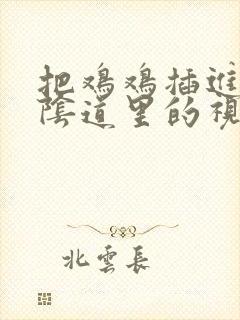 把鸡鸡插进
阴道里的视
北云长